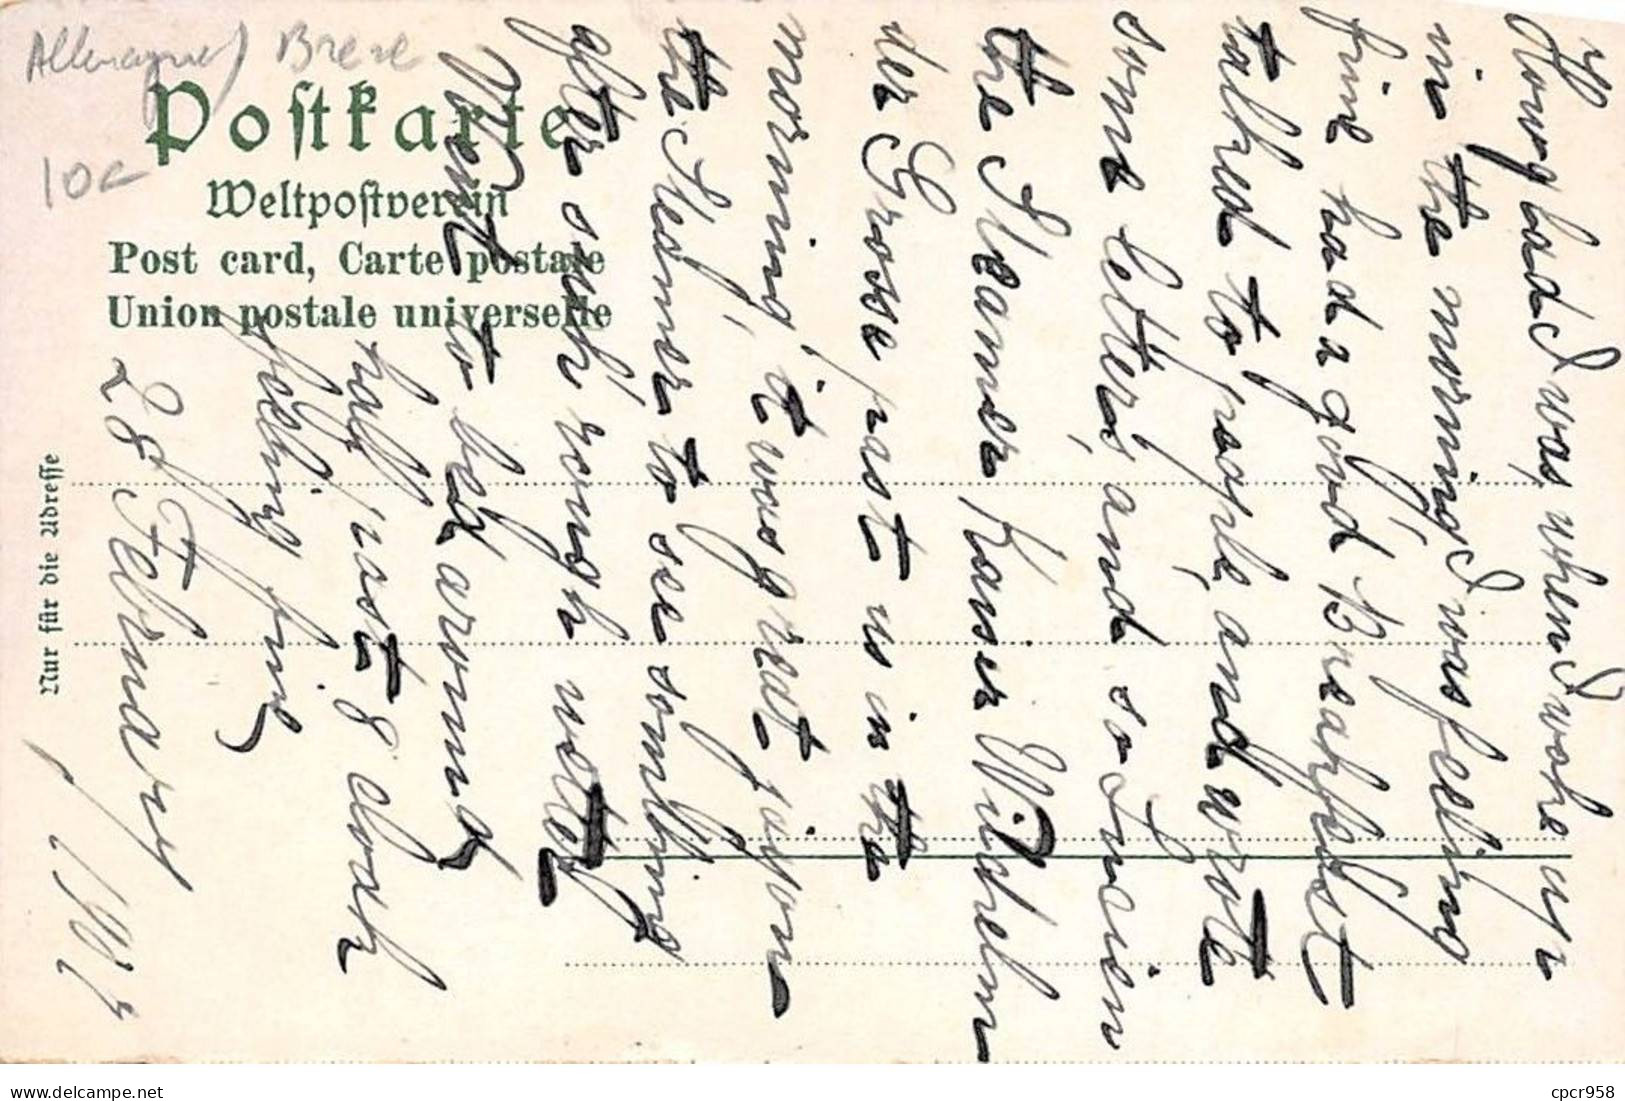 Allemagne) Breze
10c
Postkarte
Weltpostverein
Post card, Carte postale
Union postale universelle
Nur für die Adresse
How glad I was, when I woke up
in the morning I was feeling
fine had a good Breakfast
talked to people, and wrote
some letters, and so
the Steamer Kaiser Wilhelm
der Grosse past us in the
morning, it was great
the Steamer to see something
after such rough
Went to bed around
half past 8 cloak
feeling fine
28 February
delcampe.net
cpcr958